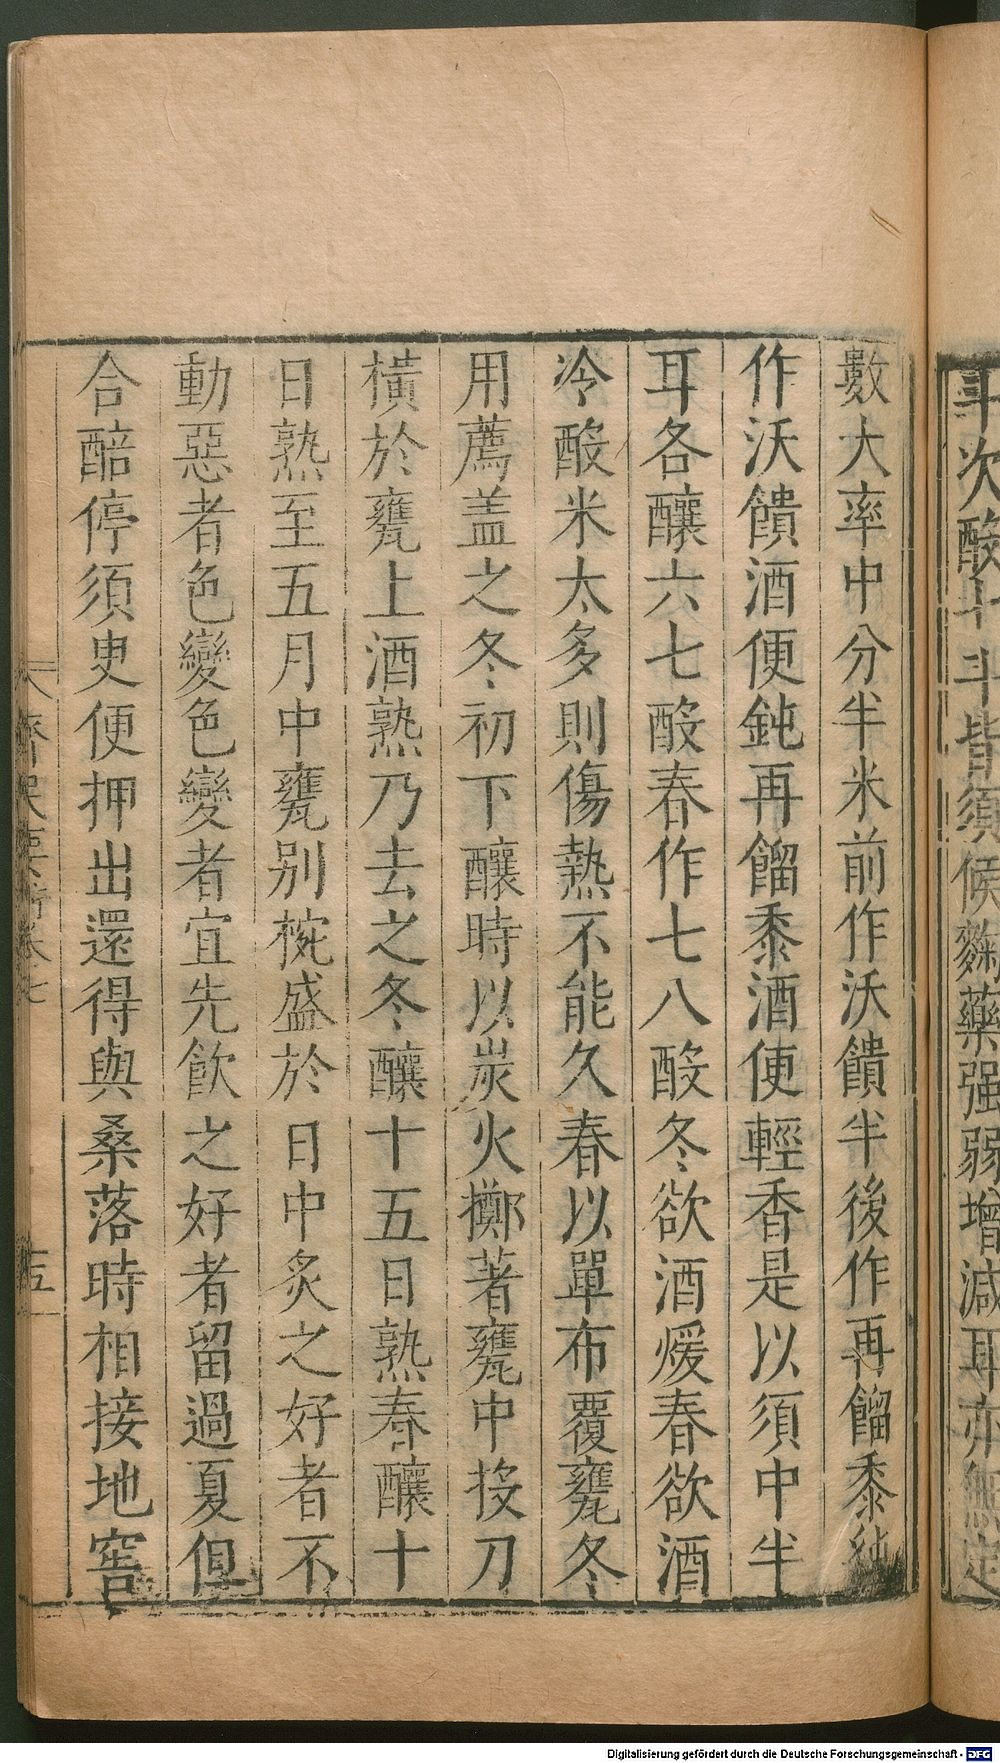 斗次酸七斗皆須候麴藥强弱增减耳亦無定
數大率中分半米前作沃饙半後作再餾黍純
作沃饙酒便鈍再餾黍酒便輕香是以須中半
耳各釀六七酘春作七八酘冬欲酒煖春欲酒
冷酘米太多則傷熱不能久春以單布覆甕冬
用薦盖之冬初下釀時以炭火擲著甕中拔刀
橫於甕上酒熟乃去之冬釀十五日熟春釀十
日熟至五月中甕别椀盛於日中炙之好者不
動惡者色變色變者宜先飲之好者留過夏但
合醅停須臾便押出還得與桑落時相接地窖
齊民要術卷七
五
Digitalisierung gefördert durch die Deutsche Forschungsgemeinschaft - DFG